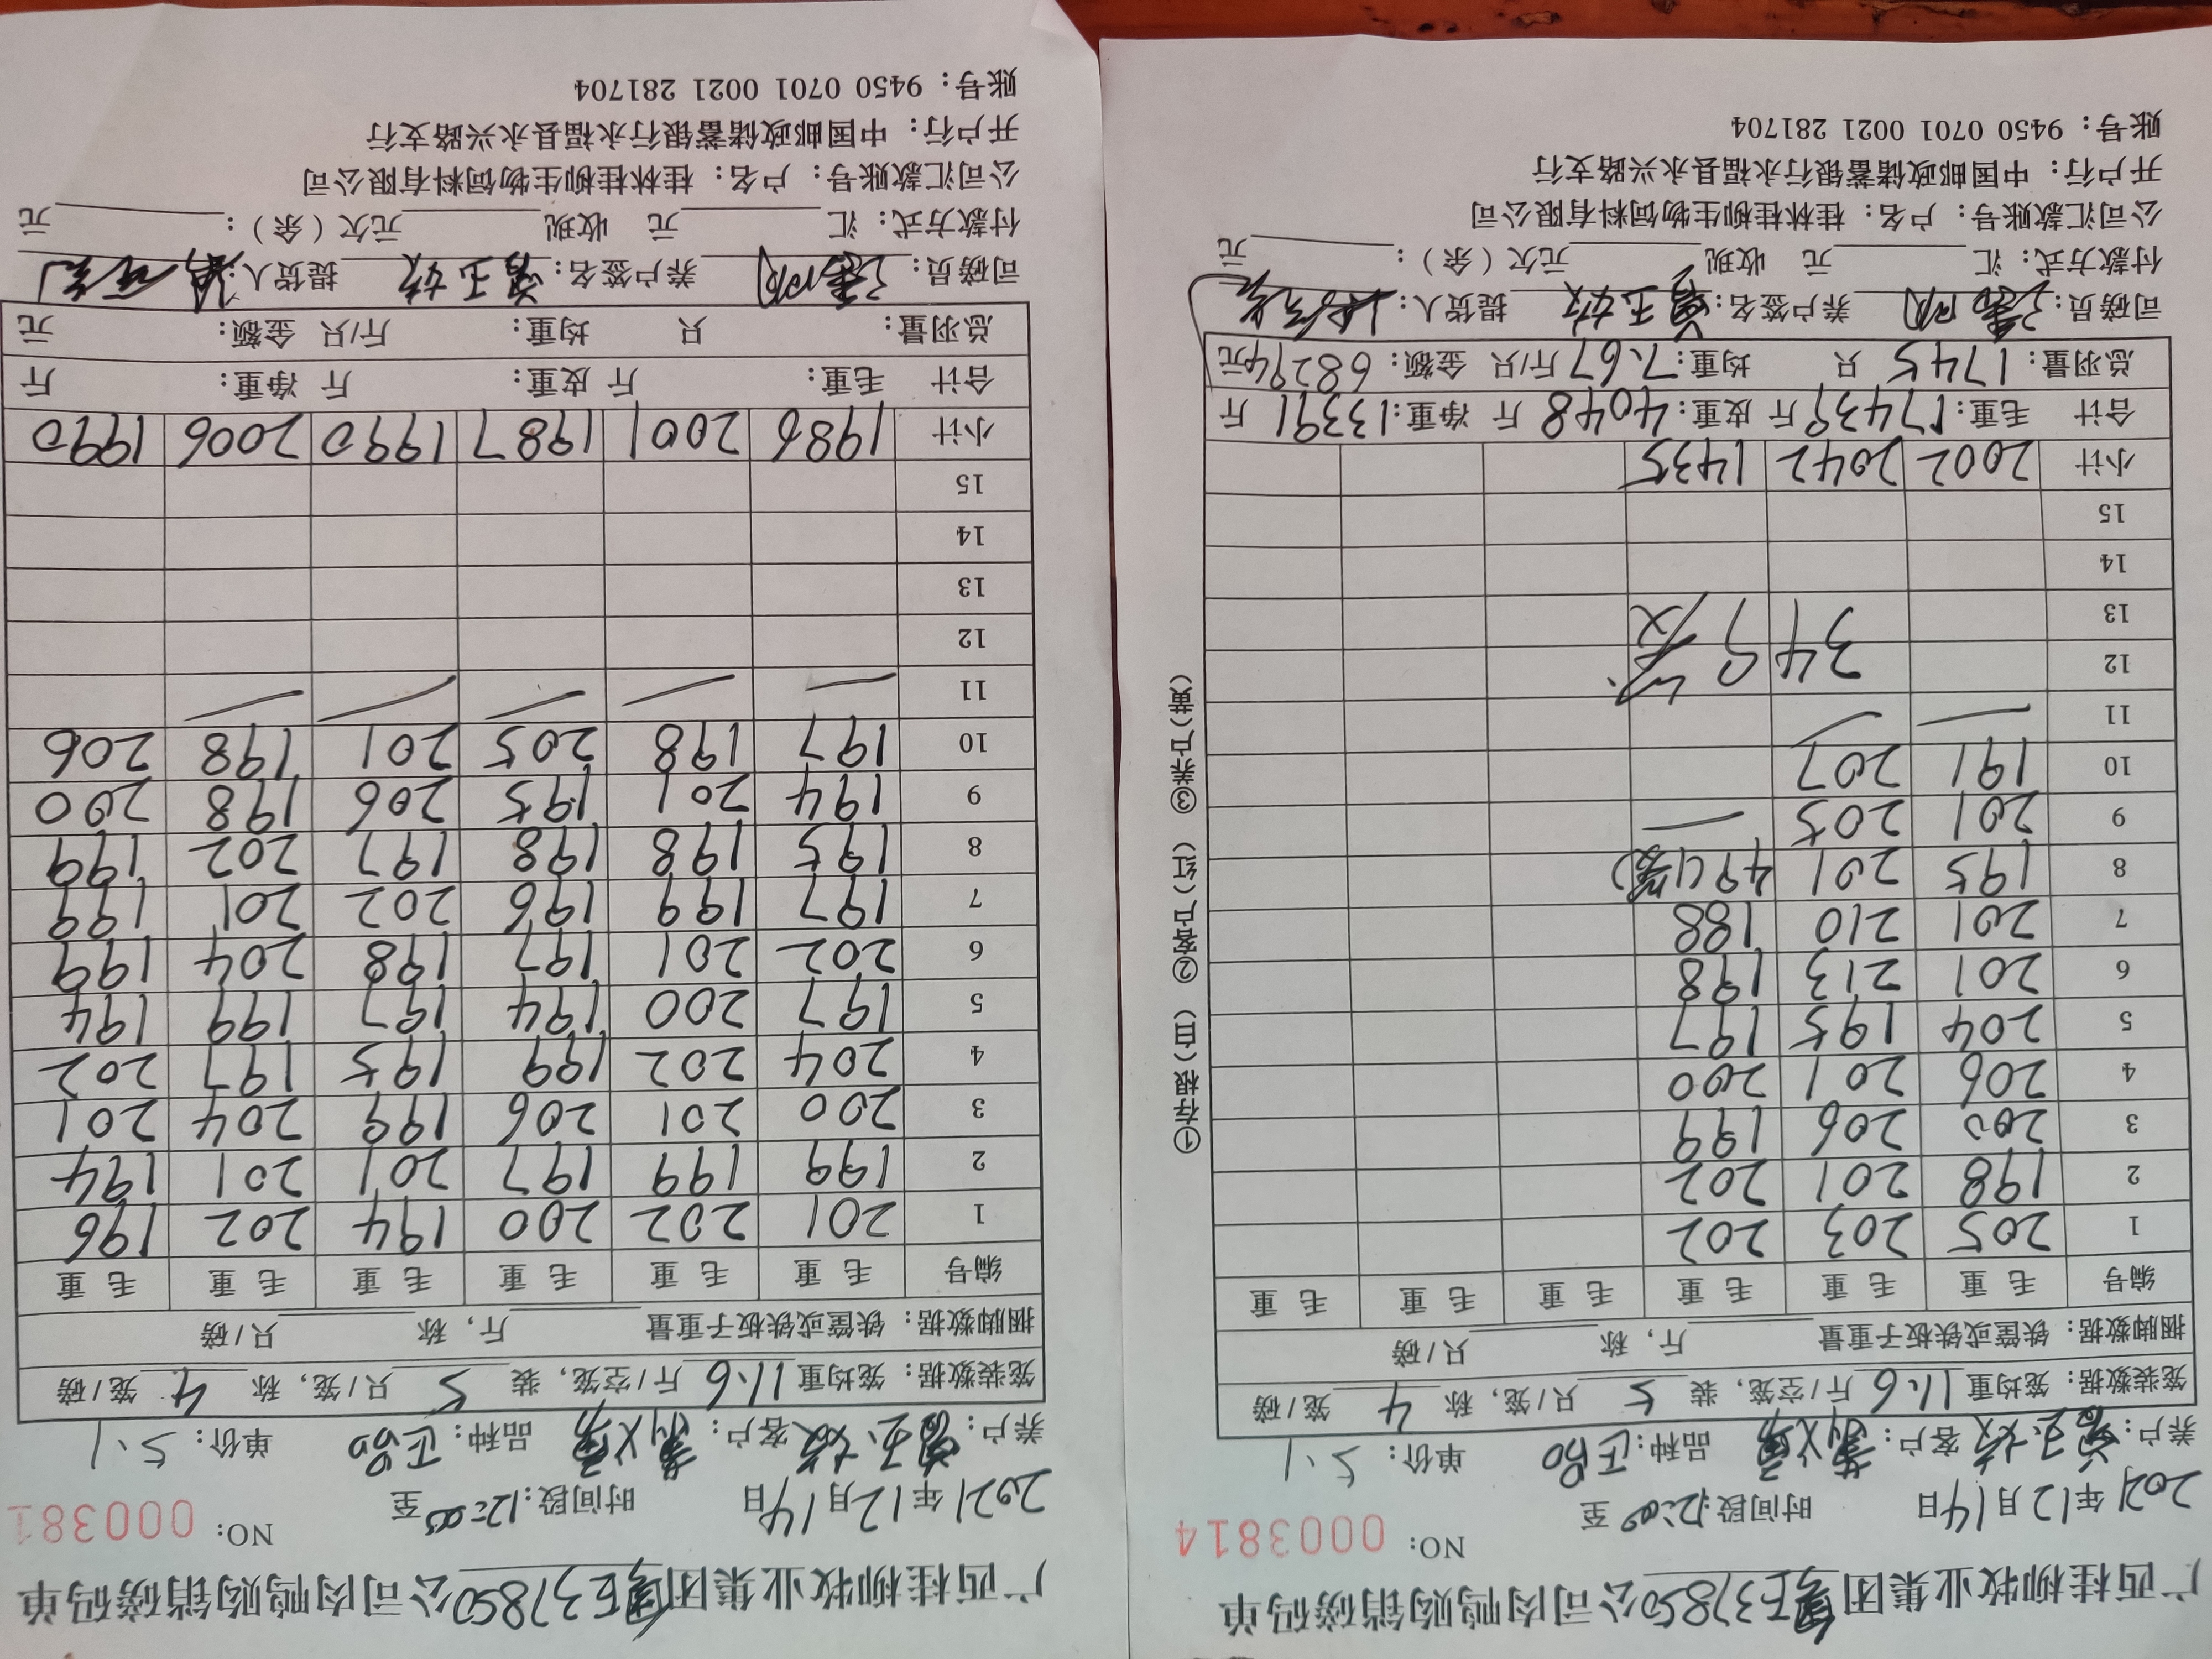 广西桂柳牧业集团 E37850公司肉鸭购销磅码单
NO: 0003814
2021年12月14日 时间段:12:00 至
养户: 客户: 品种:正品 单价: 5.1
笼装数据: 笼均重 11.6 斤/空笼, 装 5 只/笼, 称 4 笼/磅
捆脚数据: 铁筐或铁板子重量 斤, 称 只/磅
编号 毛重 毛重 毛重 毛重 毛重 毛重
1 205 203 202
2 198 201 202
3 200 206 199
4 206 201 200
5 204 195 197
6 201 213 198
7 201 210 188
8 195 201 49(1笼)
9 201 205 —
10 191 207
11 — —
12 349
13
14
15
小计 2002 2042 1435
合计 毛重: 17439斤 皮重: 4048斤 净重: 13391斤
总羽量: 1745 只 均重: 7.67 斤/只 金额: 68294元
司磅员: 养户签名: 提货人:
付款方式: 汇 元 收现 元欠(余): 元
公司汇款账号: 户名: 桂林桂柳生物饲料有限公司
开户行: 中国邮政储蓄银行永福县永兴路支行
账号: 9450 0701 0021 281704
①存根(白) ②客户(红) ③养户(黄)
广西桂柳牧业集团 E37850公司肉鸭购销磅码单
NO: 000381
2021年12月14日 时间段:12:00 至
养户: 客户: 品种:正品 单价: 5.1
笼装数据: 笼均重 11.6 斤/空笼, 装 5 只/笼, 称 4 笼/磅
捆脚数据: 铁筐或铁板子重量 斤, 称 只/磅
编号 毛重 毛重 毛重 毛重 毛重 毛重
1 201 202 200 194 202 196
2 199 199 197 201 201 194
3 200 201 206 199 204 201
4 204 202 199 195 197 202
5 197 200 194 197 199 194
6 202 201 197 198 204 199
7 197 199 196 202 201 199
8 195 198 198 197 202 199
9 194 201 195 206 198 200
10 197 198 205 201 198 206
11 — — — — —
12
13
14
15
小计 1986 2001 1987 1990 2006 1990
合计 毛重: 斤 皮重: 斤 净重: 斤
总羽量: 只 均重: 斤/只 金额: 元
司磅员: 养户签名: 提货人:
付款方式: 汇 元 收现 元欠(余): 元
公司汇款账号: 户名: 桂林桂柳生物饲料有限公司
开户行: 中国邮政储蓄银行永福县永兴路支行
账号: 9450 0701 0021 281704